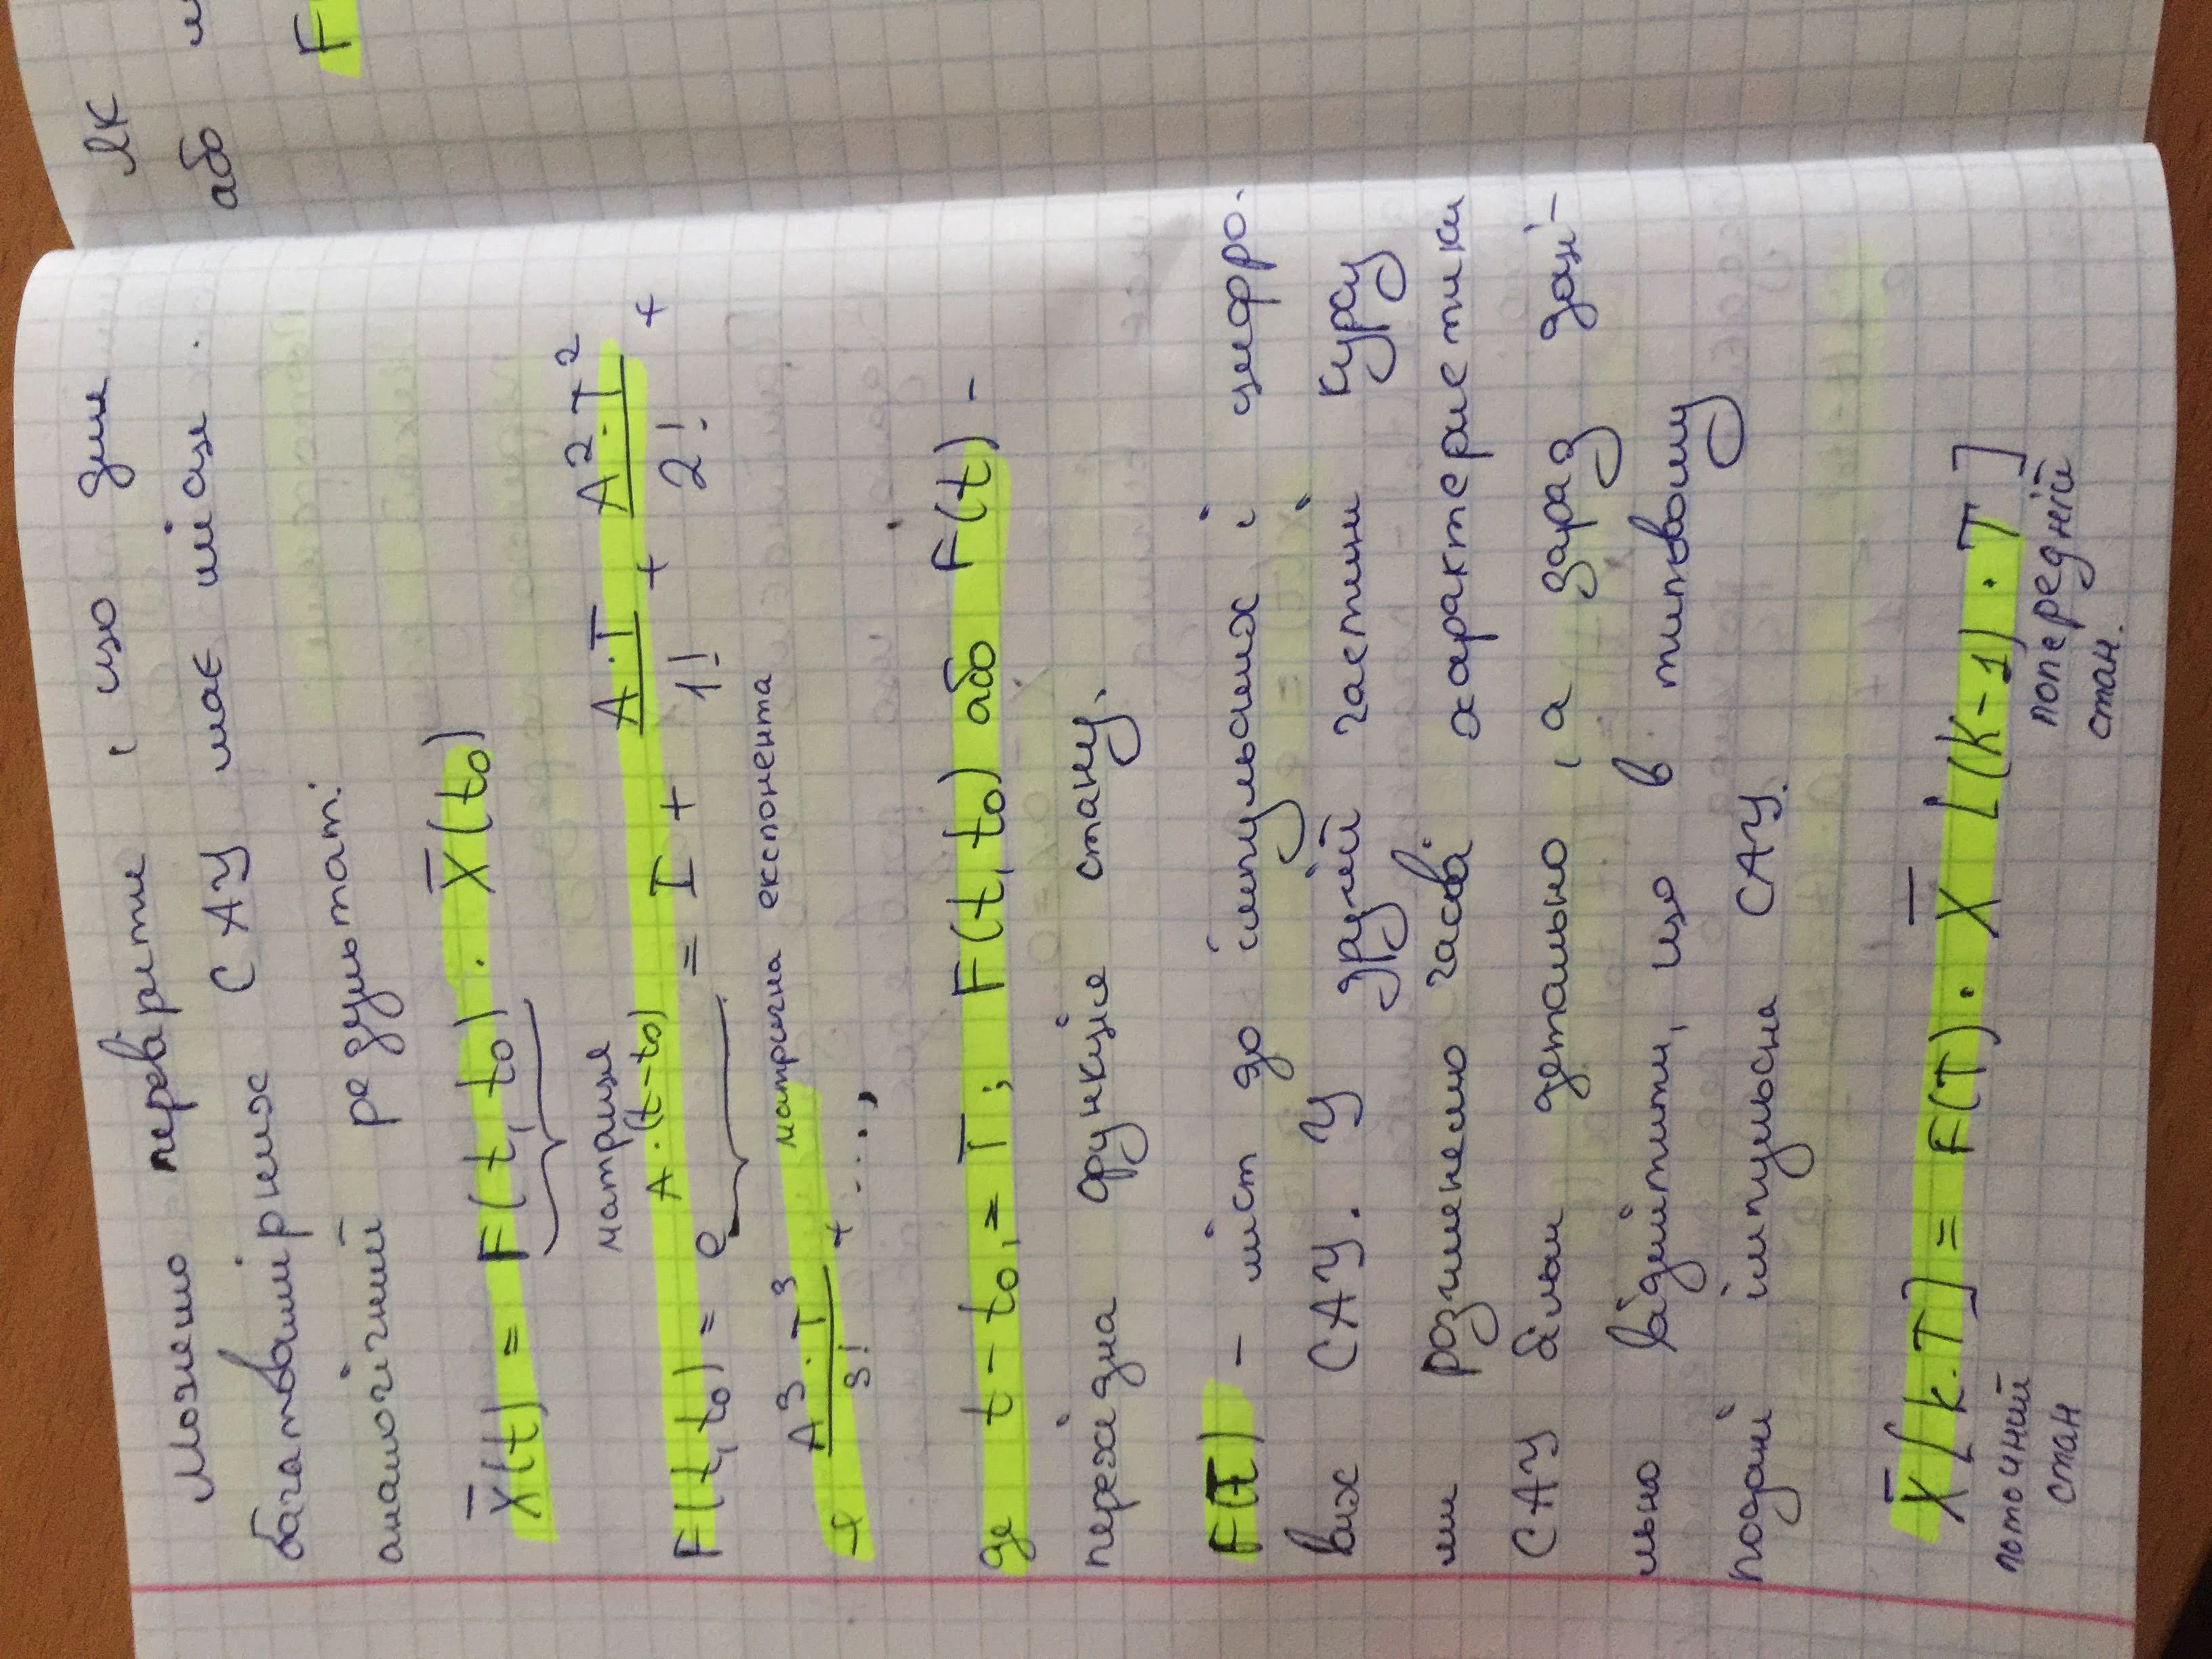 Можемо перевірити, що для
багатовимірних САУ має місце
аналогічний результат:
X̅(t) = F(t, t₀) · X̅(t₀)
матриця
F(t, t₀) = e^(A·(t-t₀)) = I + A·T/1! + A²·T²/2! +
матрична експонента
+ A³·T³/3! + ...,
де t - t₀ = T; F(t, t₀) або F(t) -
перехідна функція стану.
F(T) - міст до імпульсних і цифро-
вих САУ. У другій частині курсу
ми розглянемо часові характеристики
САУ більш детально, а зараз доці-
льно відмітити, що в типовому
подані імпульсна САУ.
X̅[k·T] = F(T) · X̅ [(K-1) · T]
поточний
стан
попередній
стан.
ЯК
або
F